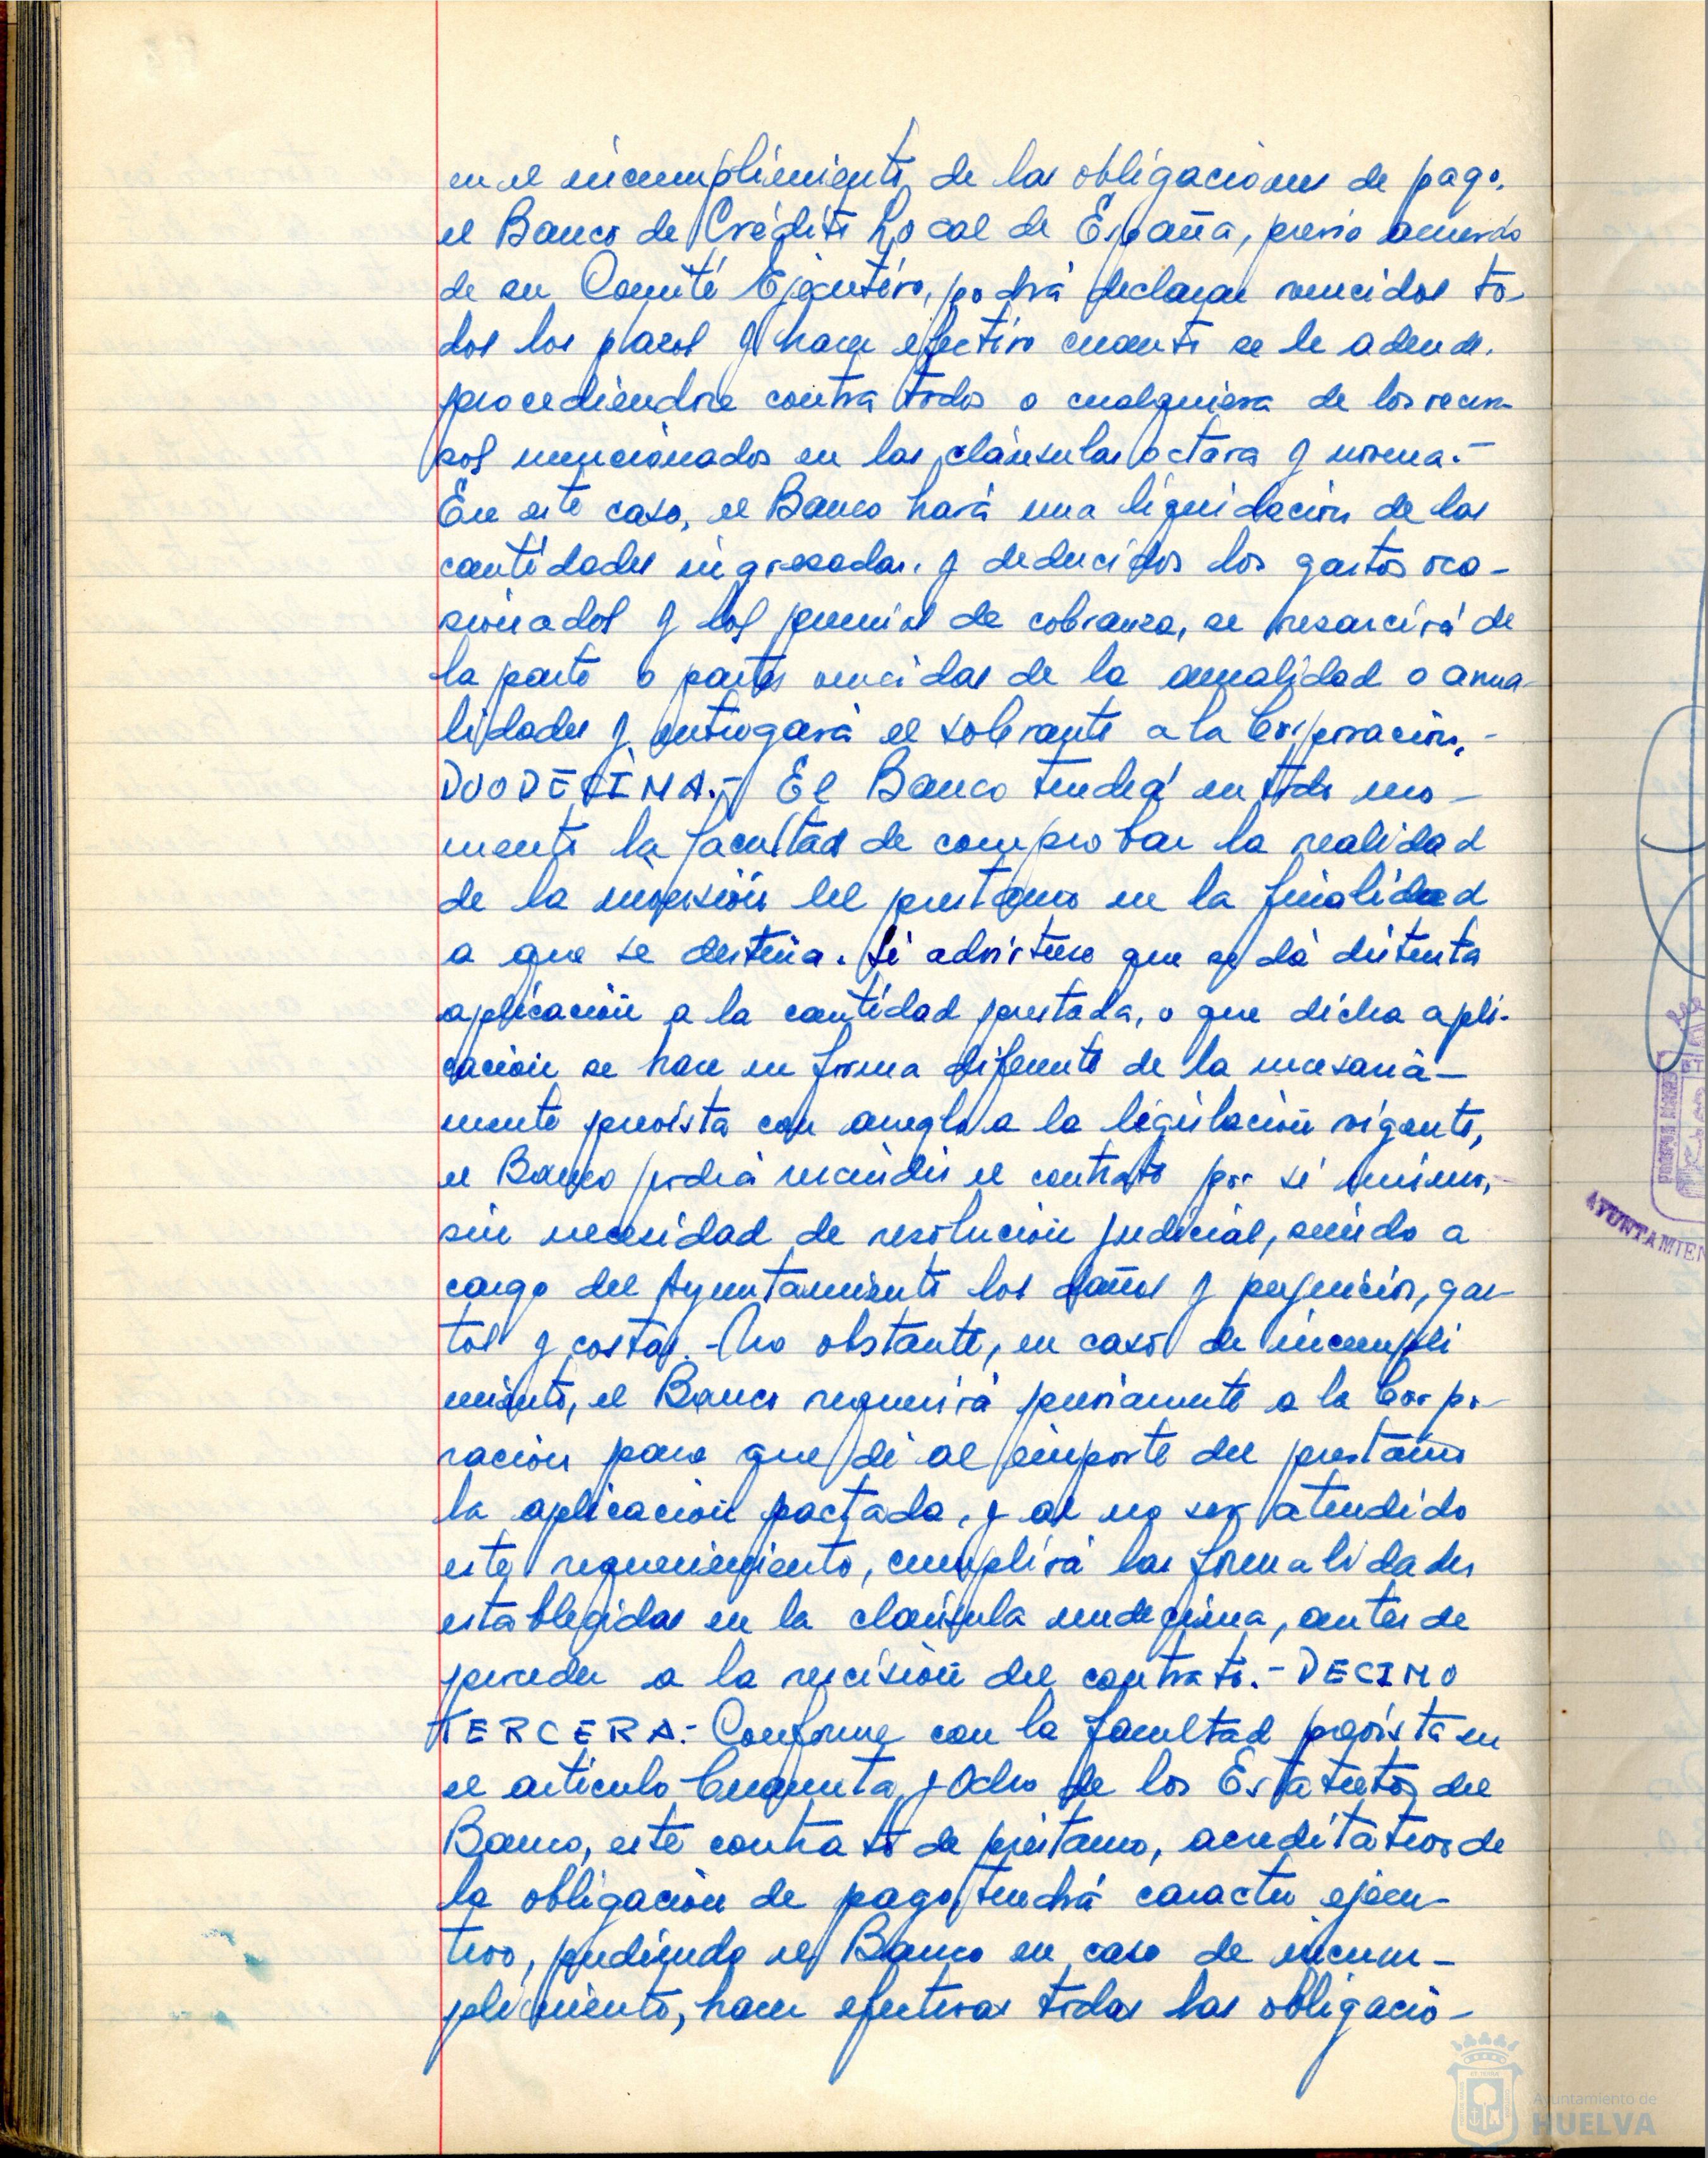 en el incumplimiento de las obligaciones de pago.
el Banco de Crédito Local de España, previo acuerdo
de su Comité Ejecutivo, podrá declarar vencidos to-
dos los plazos y hacer efectivo cuanto se le adeude.
procediendose contra todos o cualquiera de los recur-
sos mencionados en las cláusulas octava y novena.-
En este caso, el Banco hará una liquidación de las
cantidades ingresadas, y deducidos los gastos oca-
sionados y los premios de cobranza, se resarcirá de
la parte o partes vencidas de la anualidad o anua-
lidades y entregará el sobrante a la Corporación.-
DUODECIMA.- El Banco tendrá en todo mo-
mento la facultad de comprobar la realidad
de la inversión del prestamo en la finalidad
a que se destina. Si advirtiese que se dá distinta
aplicación a la cantidad prestada, o que dicha apli-
cación se hace en forma diferente de la necesaria-
mente prevista con arreglo a la legislación vigente,
el Banco podrá rescindir el contrato por si mismo,
sin necesidad de resolución judicial, siendo a
cargo del Ayuntamiento los daños y perjuicios, gas-
tos y costas.- No obstante, en caso de incumpli
miento, el Banco requerirá previamente a la Corpo-
ración para que dé al importe del prestamo
la aplicación pactada, y al no ser atendido
este requerimiento, cumplirá las formalidades
establecidas en la claúsula undecima, antes de
proceder a la rescisión del contrato.- DECIMO
TERCERA.- Conforme con la facultad prevista en
el artículo Cincuenta y Ocho de los Estatutos del
Banco, este contrato de préstamo, acreditativo de
la obligación de pago, tendrá caracter ejecu-
tivo, pudiendo el Banco en caso de incum-
plimiento, hacer efectivas todas las obligacio-
AYUNTAMIEN
Ayuntamiento de
HUELVA